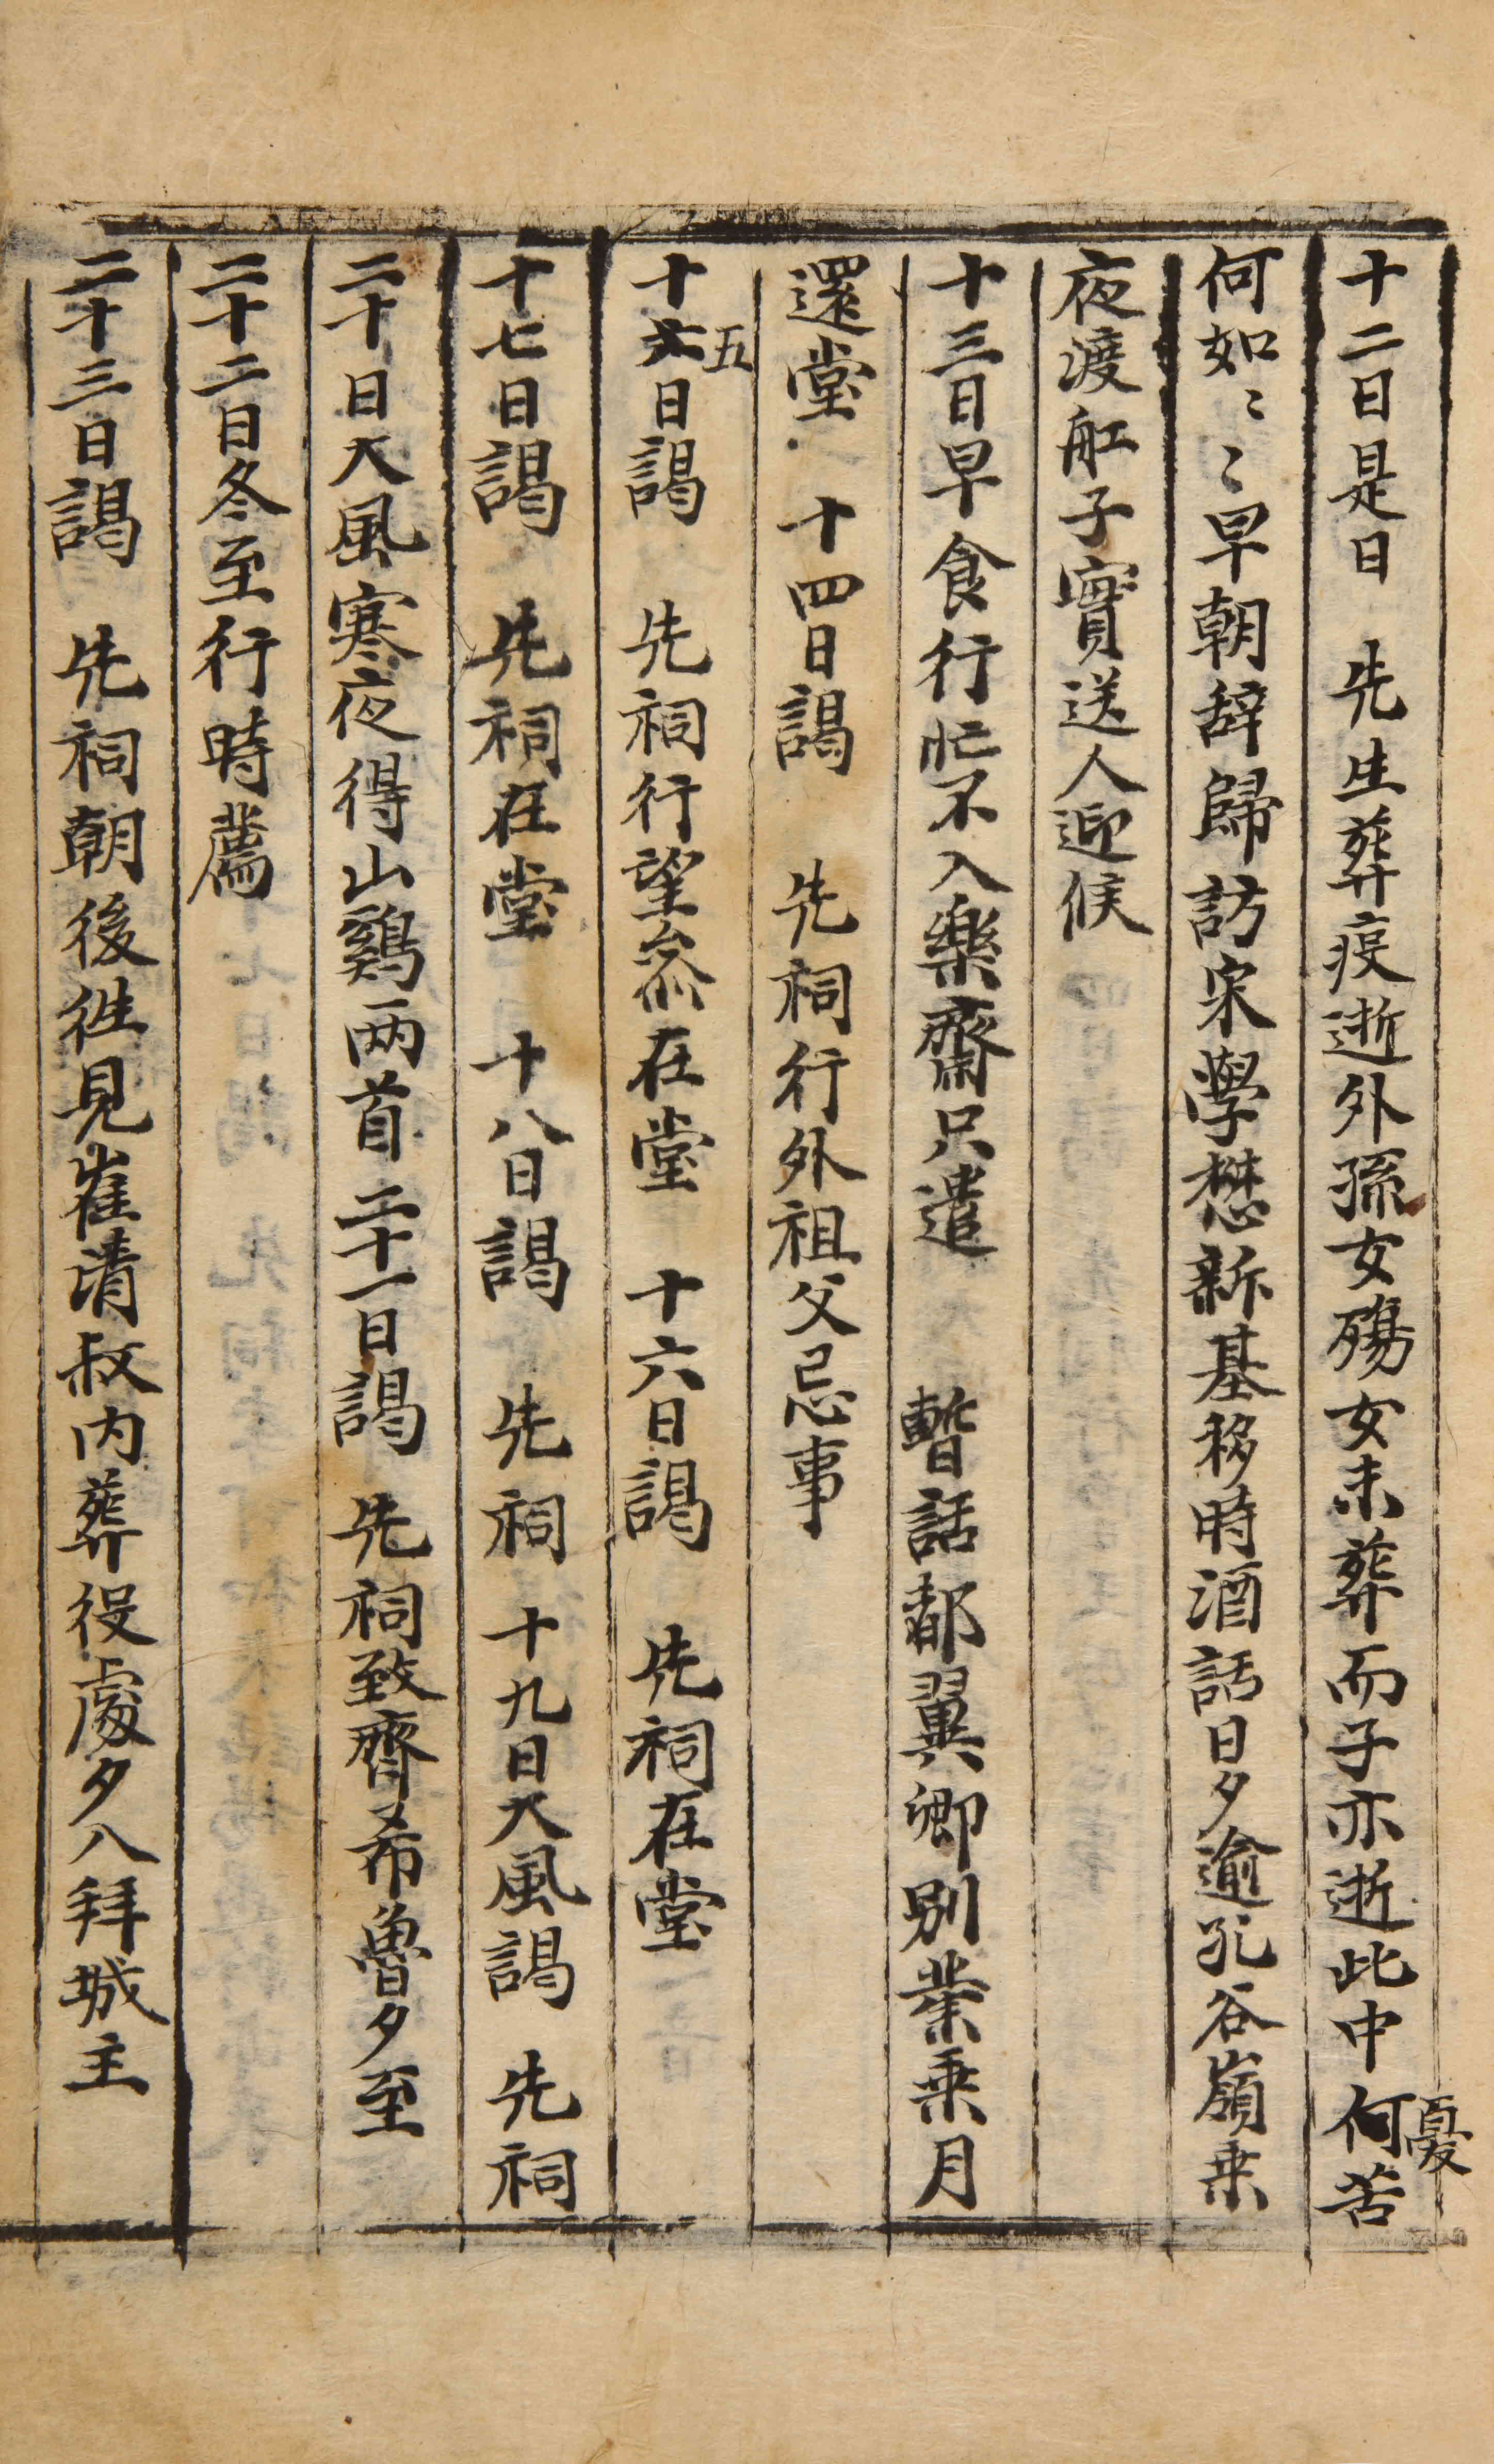 十二日是日　先生葬疫逝外孫女殤女未葬而子亦逝此中何苦
憂
何如〻〻早朝辞歸訪宋學懋新基移時酒話日夕逾孔谷嶺乘
夜渡舡子實送人迎候
十三日早食行忙不入樂齋只遣　暫話都翼卿別業乘月
還堂　十四日謁　先祠行外祖父忌事
五
十六日謁　先祠行望叅在堂　十六日謁　先祠在堂
十七日謁　先祠在堂　十八日謁　先祠　十九日大風謁　先祠
二十日大風寒夜得山鷄兩首　二十一日謁　先祠致齊希魯夕至
二十二日冬至行時薦
二十三日謁　先祠朝後徃見崔清叔內葬役處夕入拜城主